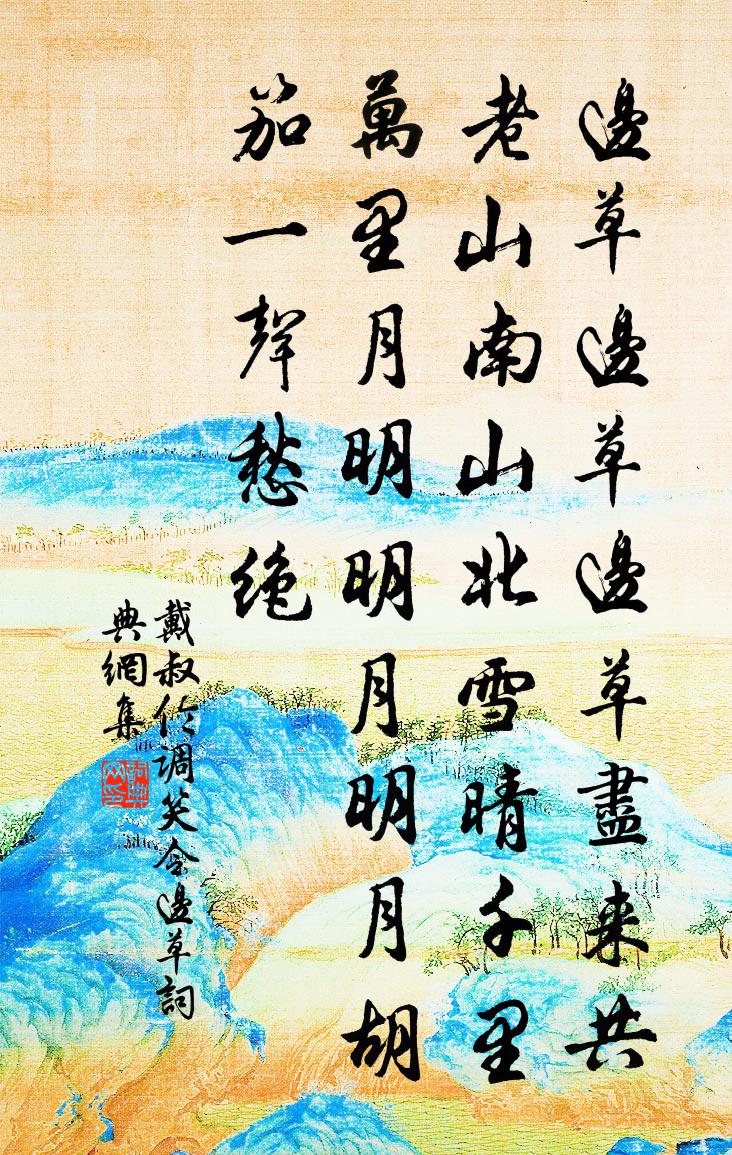 邊草邊草邊草盡来共
老山南山北雪晴千里
萬里月明明月明月胡
笳一聲愁絶
戴叔伦調笑令邊草詞
典網集